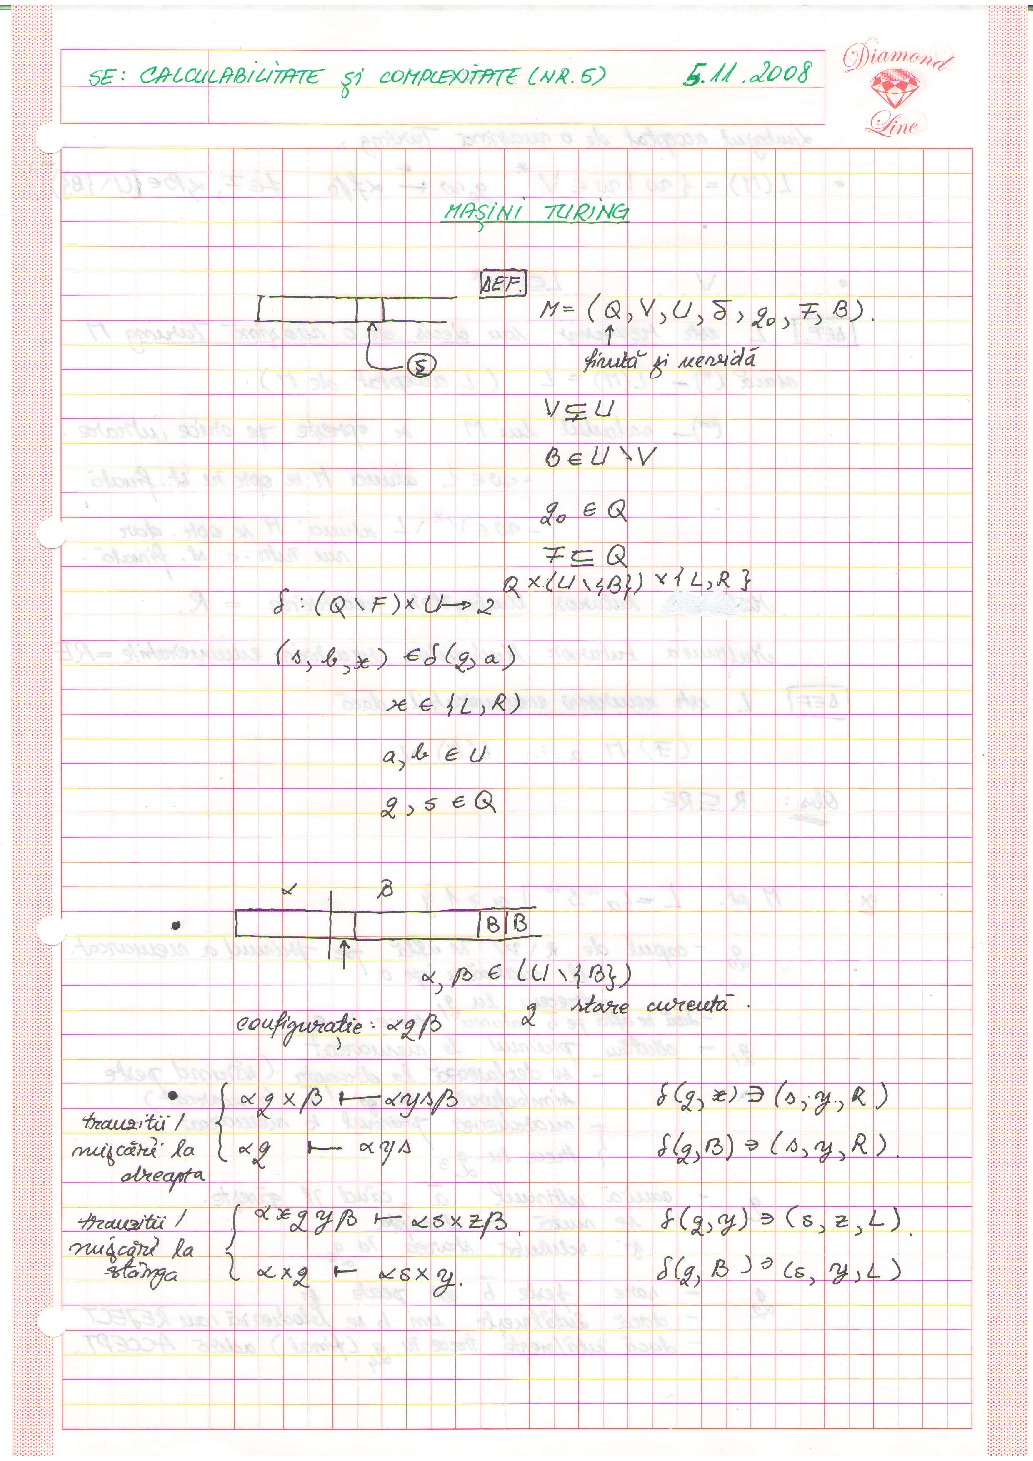 SE: CALCULABILITATE şi COMPLEXITATE (NR. 5) 5.11.2008
Diamond Line
MAŞINI TURING
DEF.
M = (Q, V, U, δ, q₀, F, B).
finită şi nevidă
S
V ⊊ U
B ∈ U \ V
q₀ ∈ Q
F ⊆ Q
δ : (Q \ F) × U → 2^(Q × (U \ {B}) × {L, R})
(s, b, x) ∈ δ(q, a)
x ∈ {L, R)
a, b ∈ U
q, s ∈ Q
α β
B B
α, β ∈ (U \ {B})
q stare curentă.
configuraţie: α q β
• α q x β ⊢ α y s β δ(q, x) ∋ (s, y, R)
tranzitii / mişcări la dreapta
α q ⊢ α y s δ(q, B) ∋ (s, y, R).
tranzitii / mişcări la stânga
α x q y β ⊢ α s x z β δ(q, y) ∋ (s, z, L).
α x q ⊢ α s x y. δ(q, B) ∋ (s, y, L)